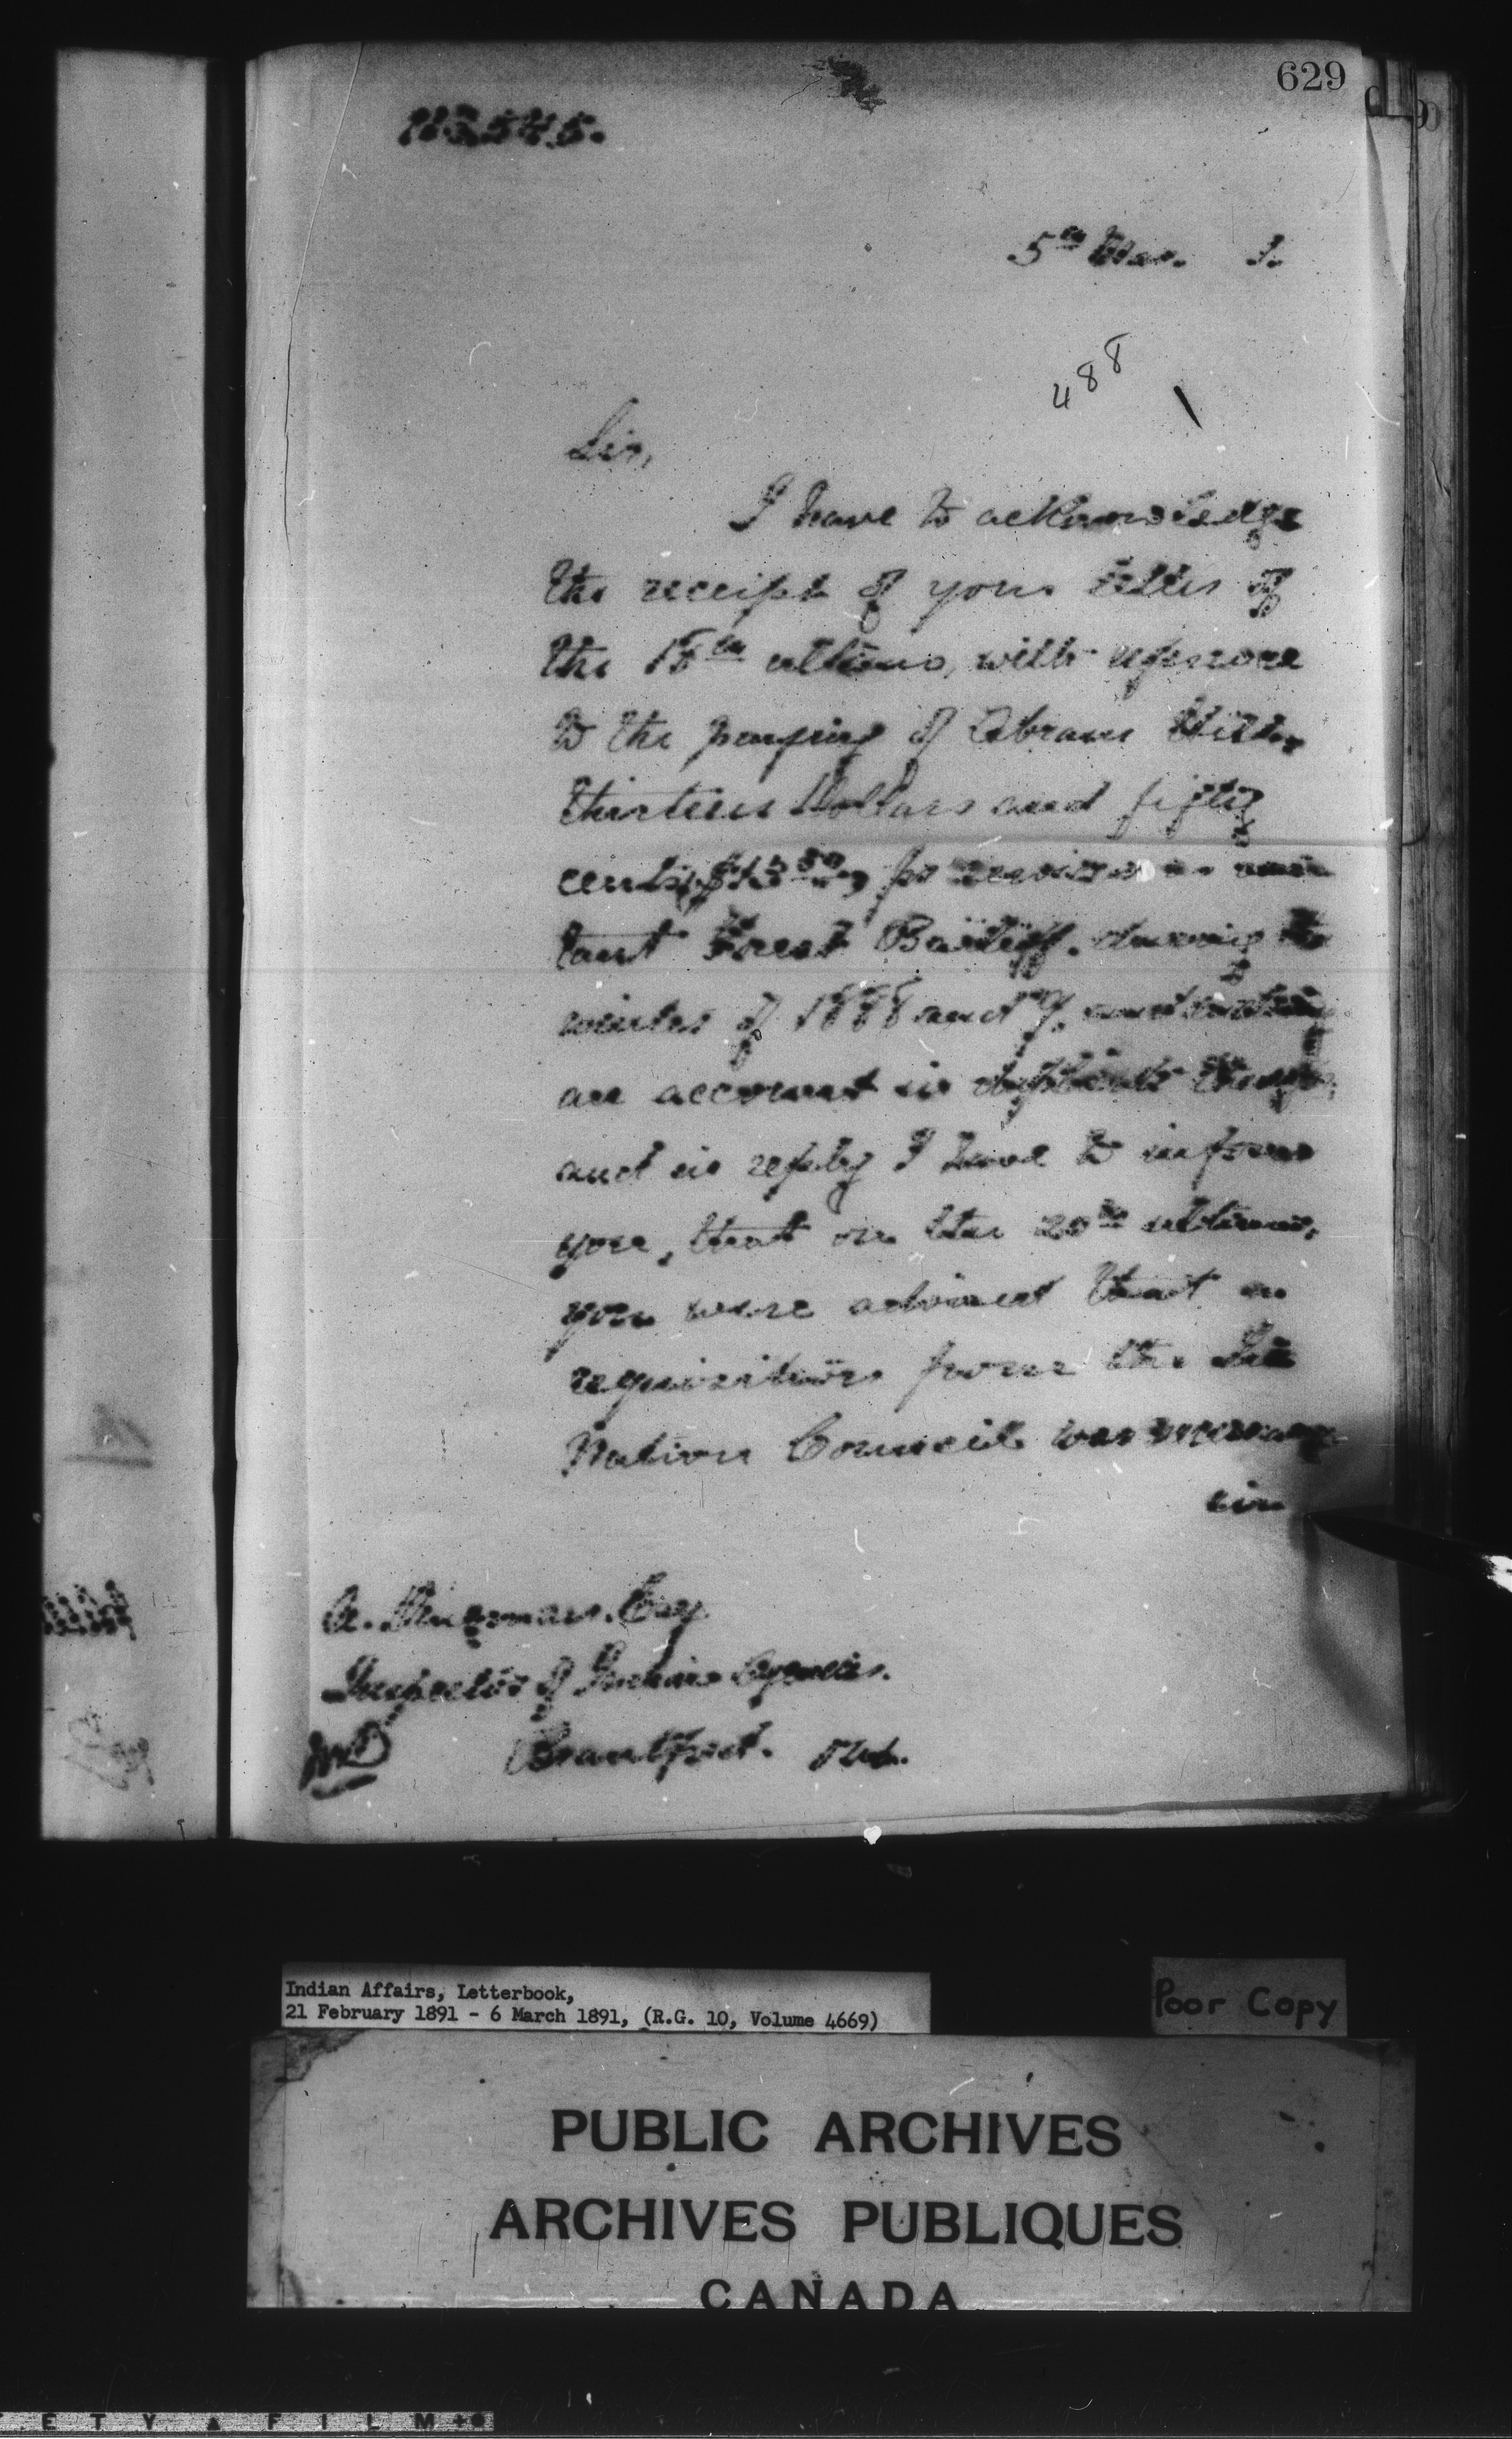 629
113545.
5th Mar. 1.
488
Sir,
I have to acknowledge
the receipt of your letter of
the 18th ultimo, with
to the paying of Abram Hill,
thirteen Dollars and fifty
cents, $13.50, for services as
tant Forest Bailiff. during the
winter of 1888 and 9, and
an account in duplicate
and in reply I have to inform
you, that on the 20th ultimo,
you were advised that a
requisition from the Six
Nation Council was necessary
in
A. Esq
Inspector of Indian Agencies.
Brantford. Ont.
Indian Affairs, Letterbook,
21 February 1891 - 6 March 1891, (R.G. 10, Volume 4669)
Poor Copy
PUBLIC ARCHIVES
ARCHIVES PUBLIQUES
CANADA
E T Y ▲ F I L M